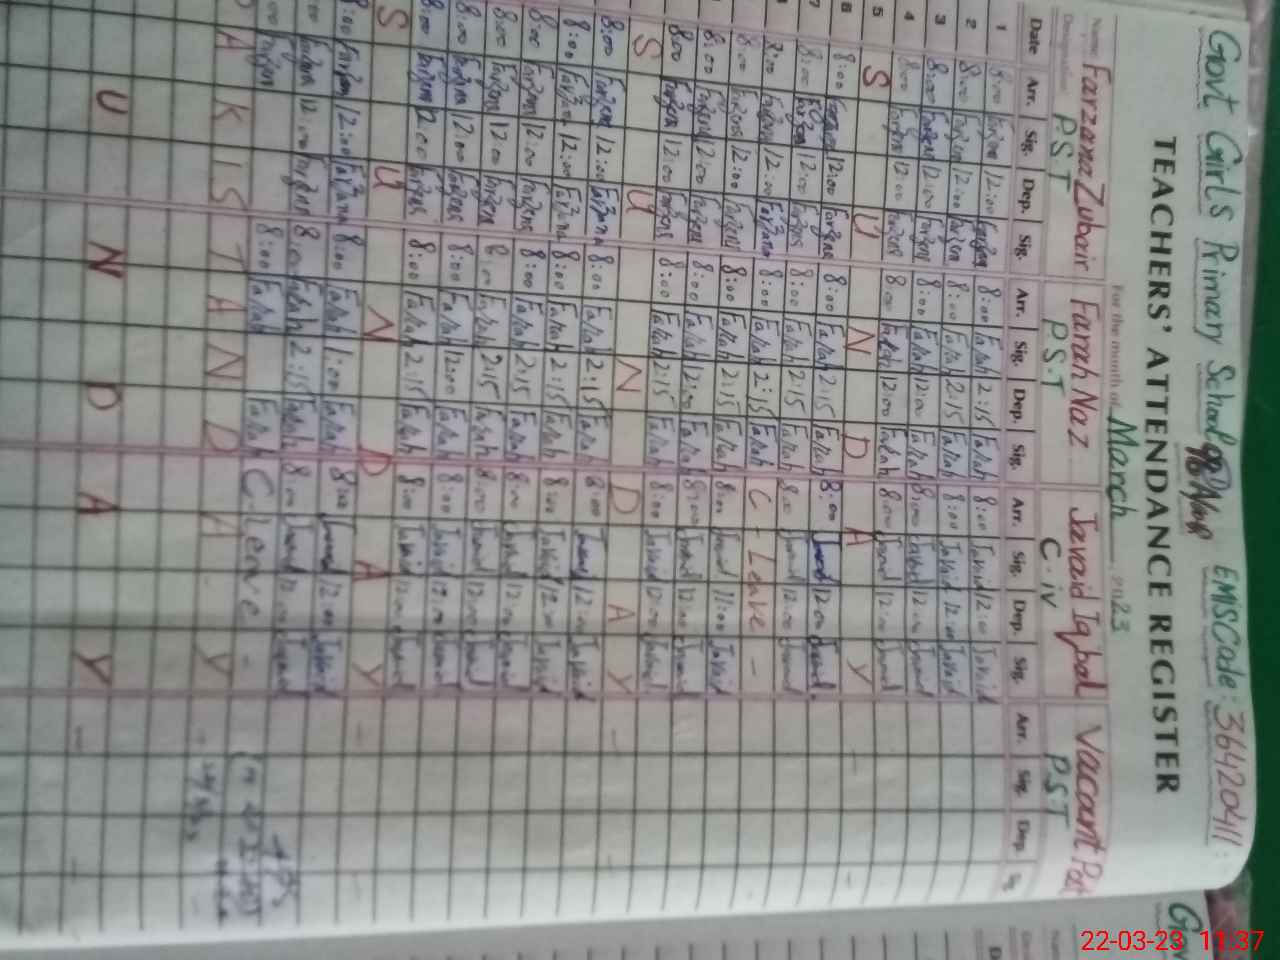 Govt Girls Primary School 98/Nuf EMIS Code: 36420411
TEACHERS' ATTENDANCE REGISTER
For the month of March, 2023
Name Farzana Zubair Farah Naz Javaid Iqbal Vacant Post
Designation P.S.T P.S.T C-iv P.S.T
Date Arr. Sig. Dep. Sig. Arr. Sig. Dep. Sig. Arr. Sig. Dep. Sig. Arr. Sig. Dep. Sig.
1 8:00 Farzana 12:00 Farzana 8:00 Farah 2:15 Farah 8:00 Javaid 12:00 Javaid
2 8:00 Farzana 12:00 Farzana 8:00 Farah 2:15 Farah 8:00 Javaid 12:00 Javaid
3 8:00 Farzana 12:00 Farzana 8:00 Farah 12:00 Farah 8:00 Javaid 12:00 Javaid
4 8:00 Farzana 12:00 Farzana 8:00 Farah 12:00 Farah 8:00 Javaid 12:00 Javaid
5 S U N D A Y
6 8:00 Farzana 12:00 Farzana 8:00 Farah 2:15 Farah 8:00 Javaid 12:00 Javaid
7 8:00 Farzana 12:00 Farzana 8:00 Farah 2:15 Farah 8:00 Javaid 12:00 Javaid
8:00 Farzana 12:00 Farzana 8:00 Farah 2:15 Farah C - Leave -
8:00 Farzana 12:00 Farzana 8:00 Farah 2:15 Farah 8:00 Javaid 11:00 Javaid
8:00 Farzana 12:00 Farzana 8:00 Farah 12:00 Farah 8:00 Javaid 12:00 Javaid
8:00 Farzana 12:00 Farzana 8:00 Farah 2:15 Farah 8:00 Javaid 12:00 Javaid
S U N D A Y
8:00 Farzana 12:00 Farzana 8:00 Farah 2:15 Farah 8:00 Javaid 12:00 Javaid
8:00 Farzana 12:00 Farzana 8:00 Farah 2:15 Farah 8:00 Javaid 12:00 Javaid
8:00 Farzana 12:00 Farzana 8:00 Farah 2:15 Farah 8:00 Javaid 12:00 Javaid
8:00 Farzana 12:00 Farzana 8:00 Farah 2:15 Farah 8:00 Javaid 12:00 Javaid
8:00 Farzana 12:00 Farzana 8:00 Farah 12:00 Farah 8:00 Javaid 12:00 Javaid
8:00 Farzana 12:00 Farzana 8:00 Farah 2:15 Farah 8:00 Javaid 12:00 Javaid
S U N D A Y
8:00 Farzana 12:00 Farzana 8:00 Farah 1:00 Farah 8:00 Javaid 12:00 Javaid
Farzana 12:00 Farzana 8:00 Farah 2:15 Farah 8:00 Javaid 12:00 Javaid
Farzana 8:00 Farah Farah C-Leave -
P A K I S T A N D A Y
U N D A Y
22-03-23 11:37